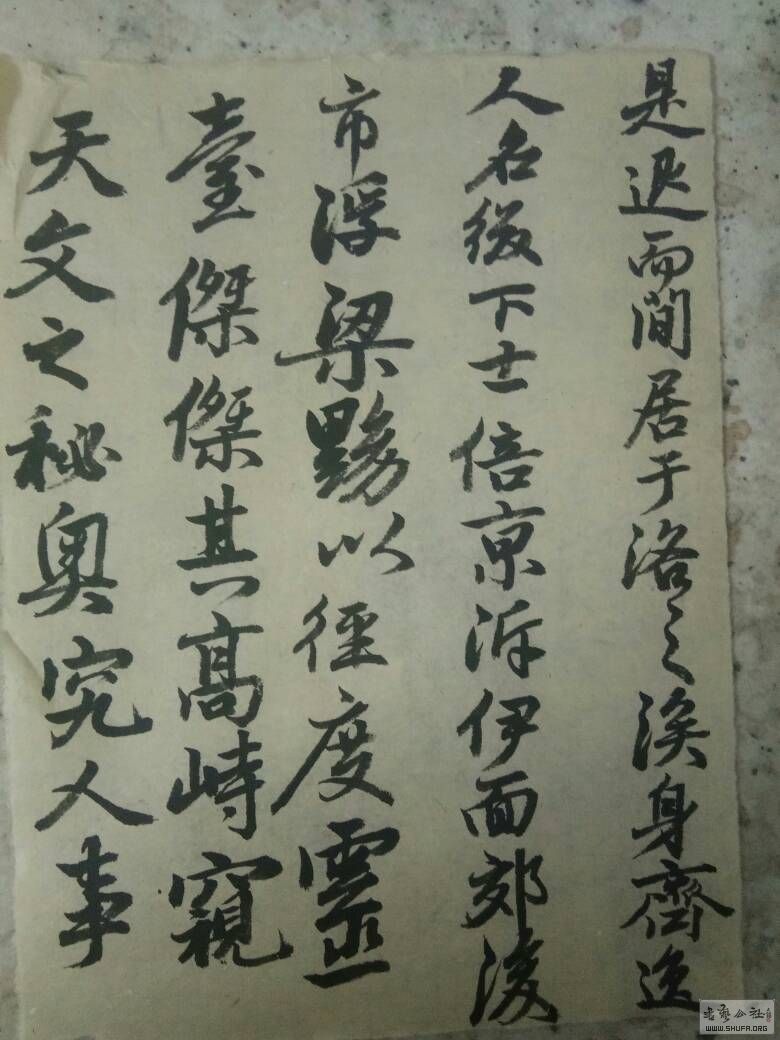 是退而閒居于洛之涘身齊逸
人名綴下士倍京泝伊面郊後
市浮梁黝以徑度靈
臺傑傑其高峙窺
天文之秘奥究人事
書藝公社
WWW.SHUFA.ORG